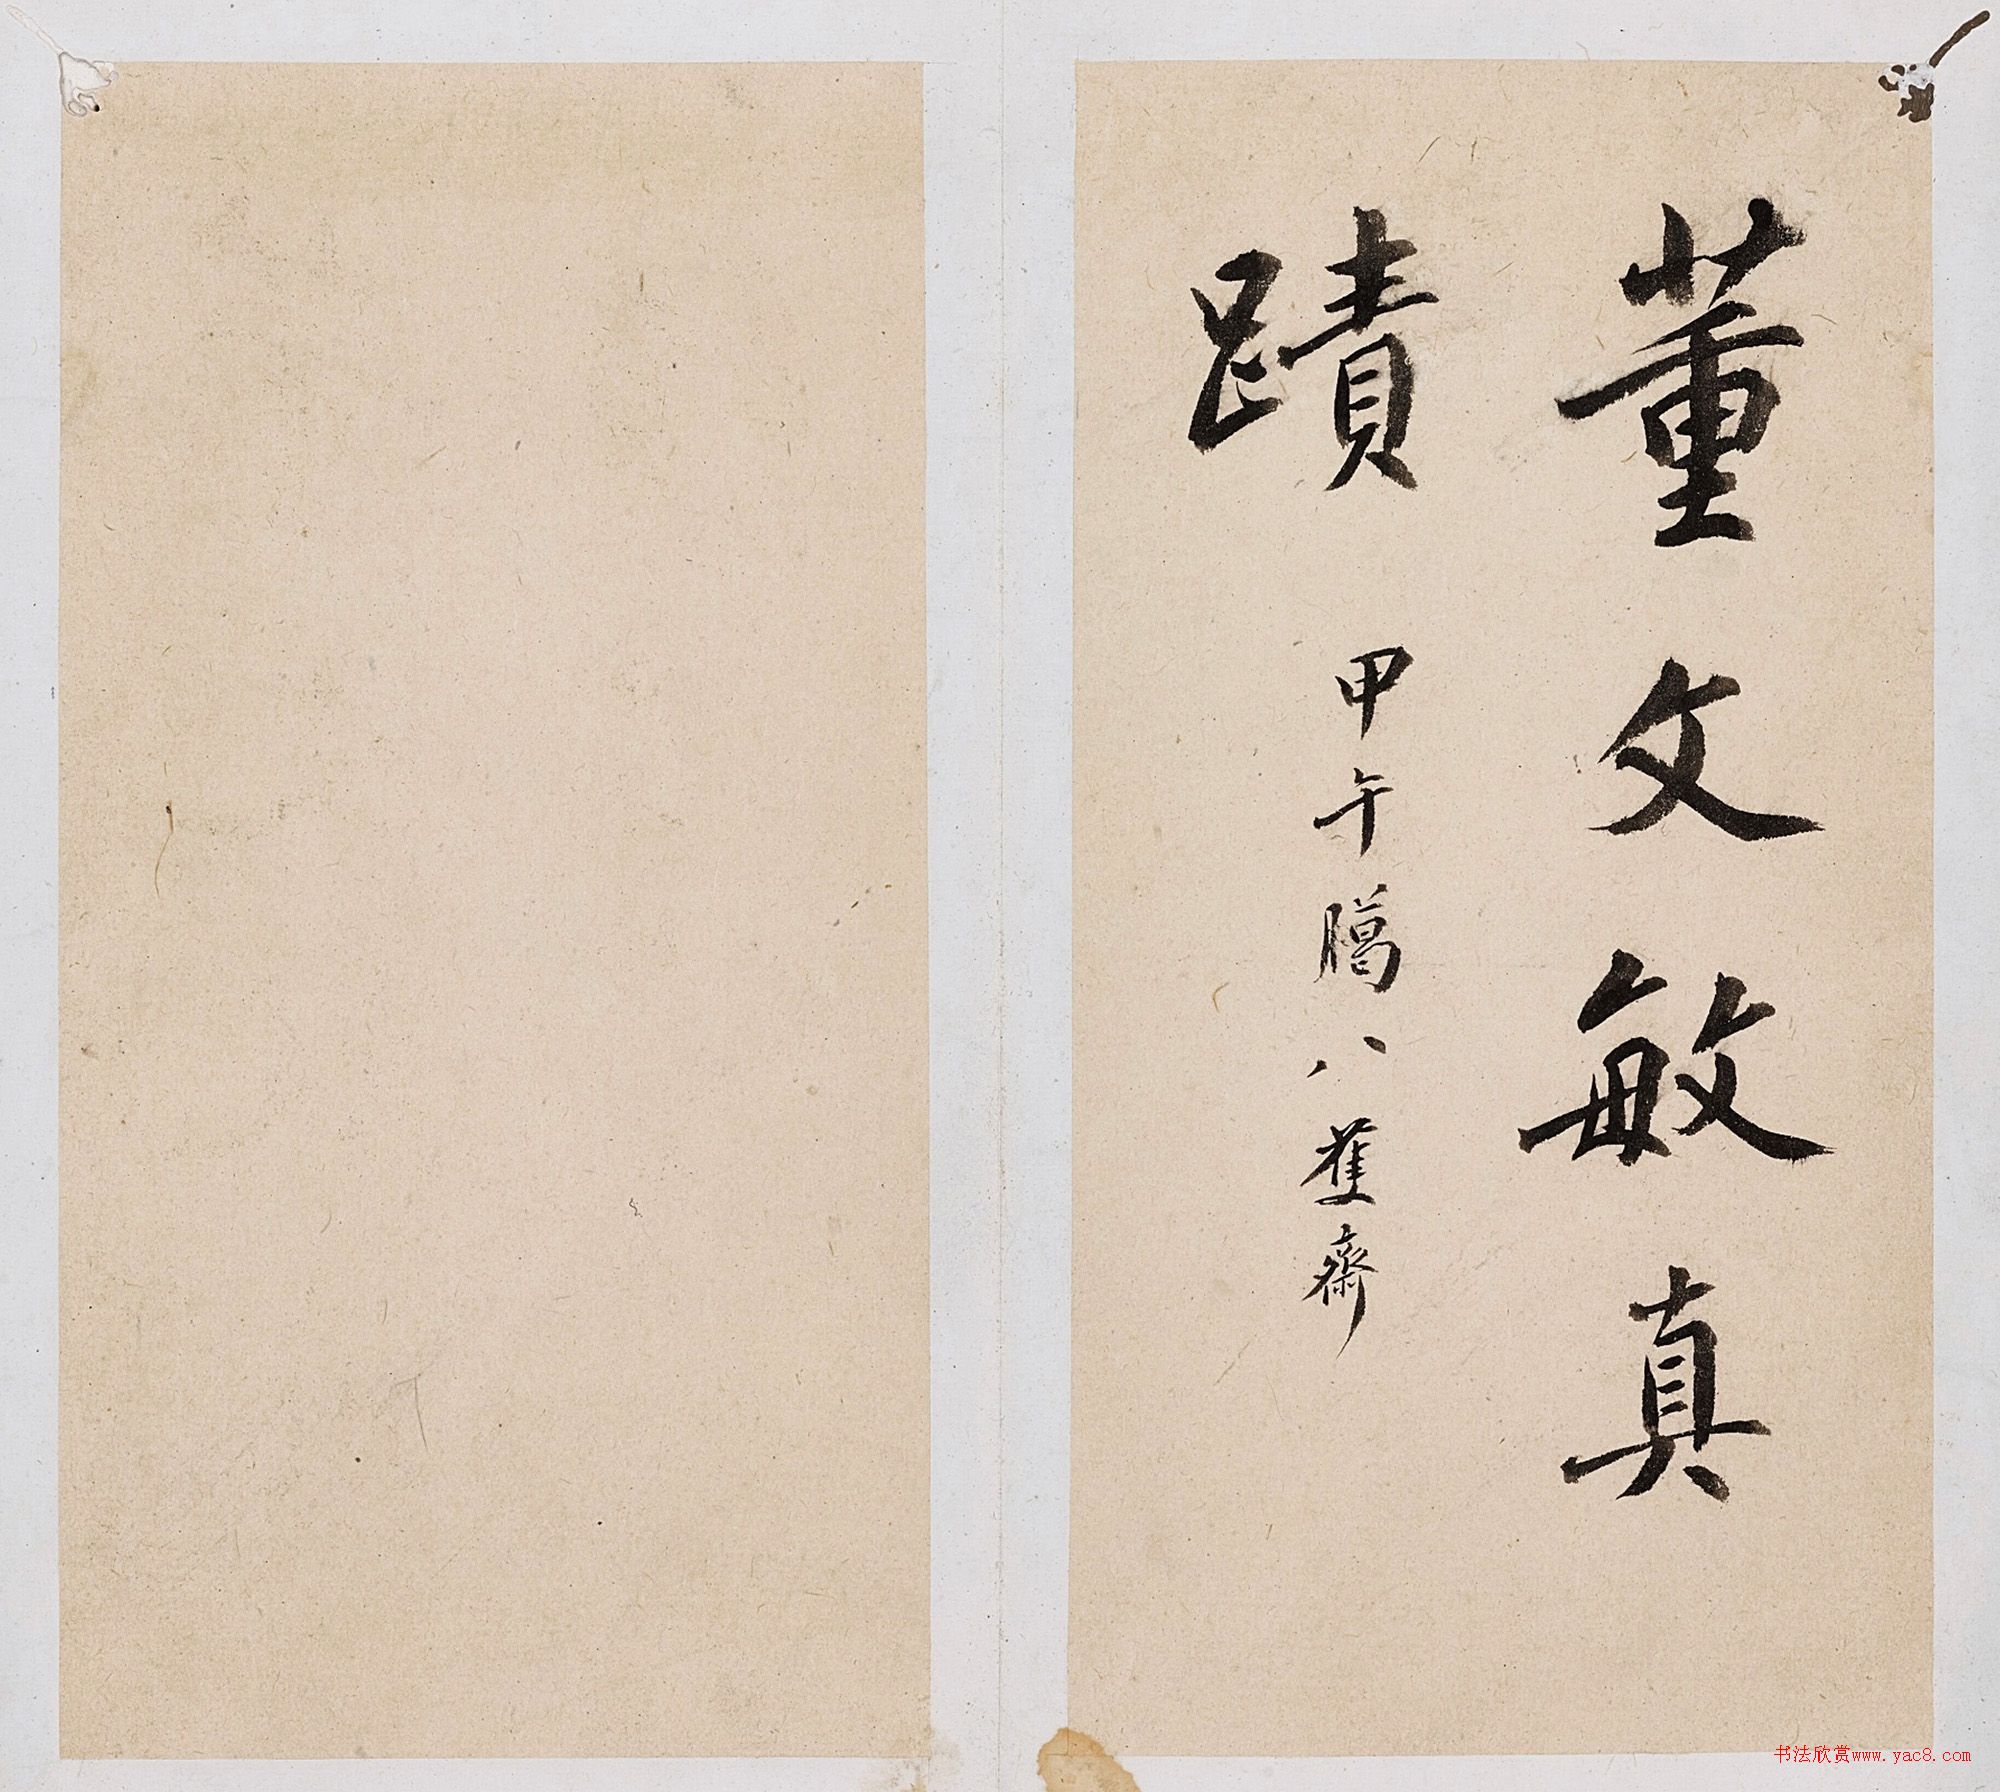 董文敏真
蹟 甲午臈八蒦齋
书法欣赏www.yac8.com